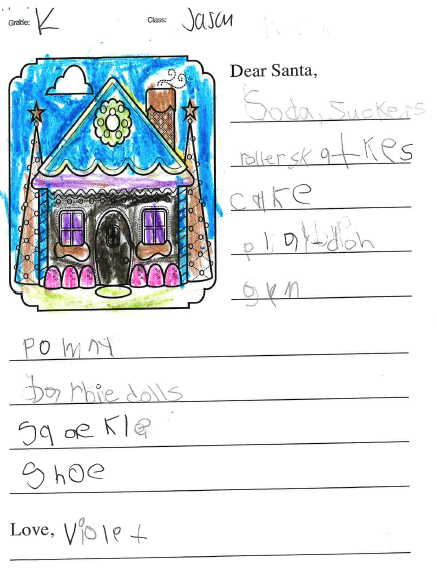 Grade: K Class: Jasan
Dear Santa,
Soda, Suckers
rollerskatkes
cake
platdoh
gun
pominy
barbie dolls
sqaekle
Shoe
Love, Violet